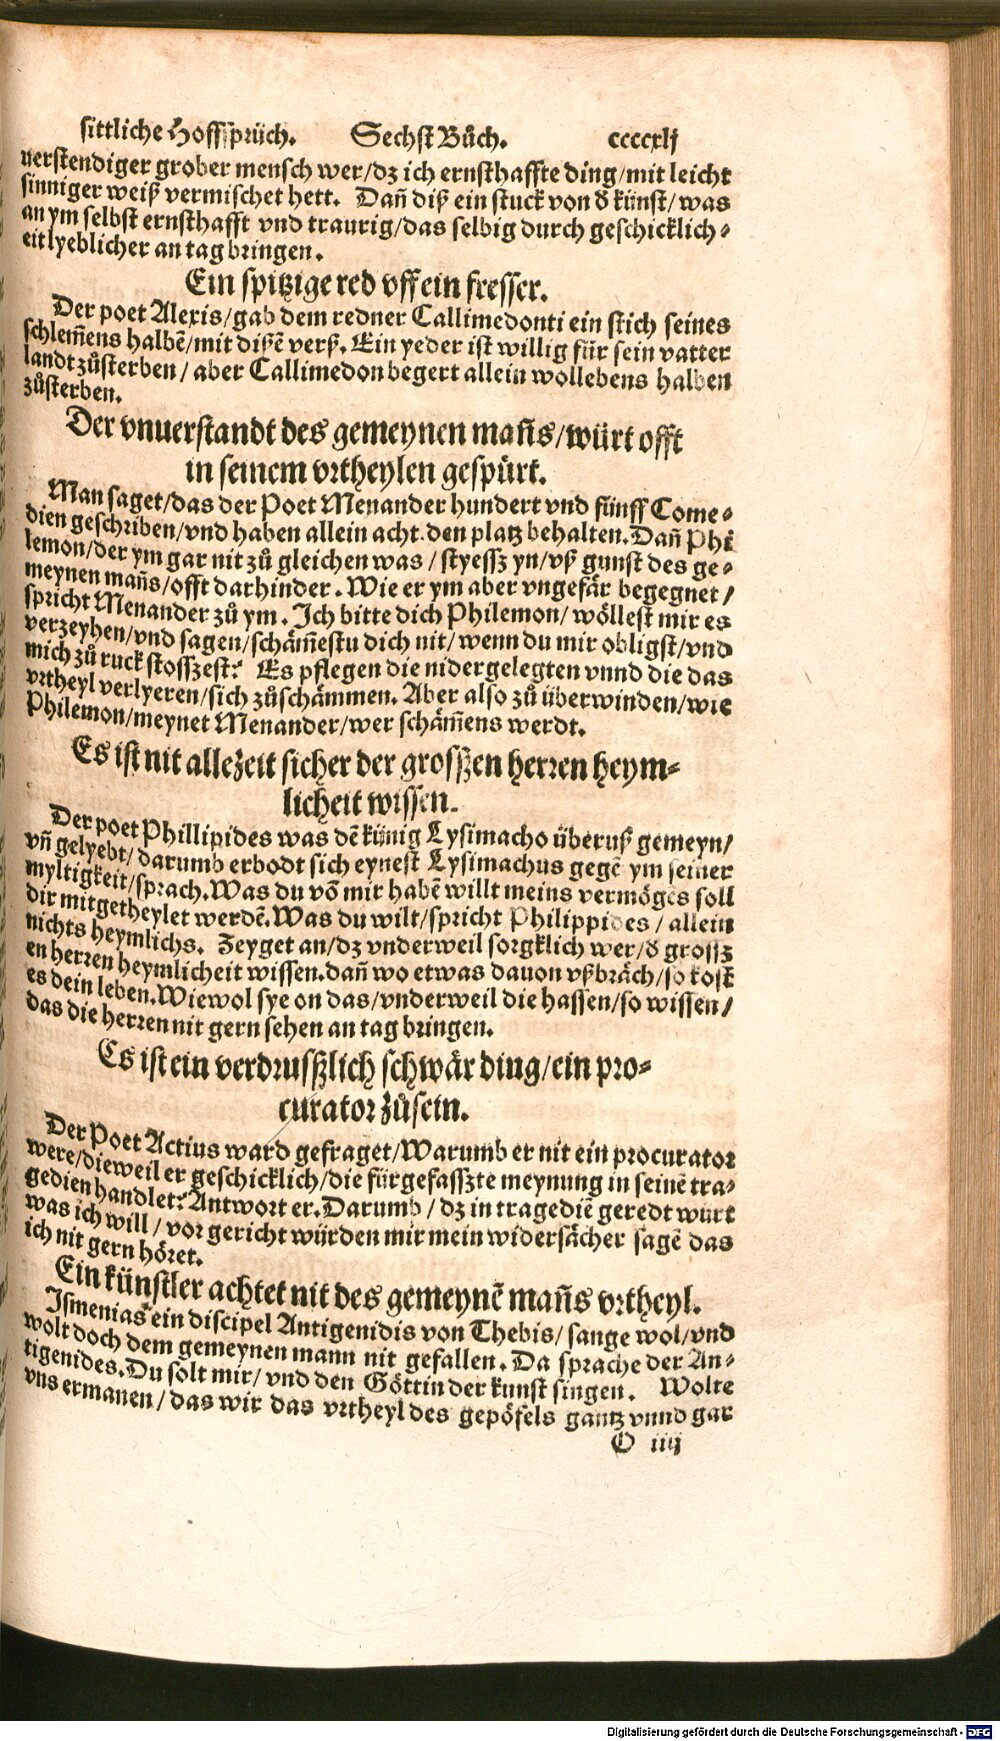 sittliche Hoffsprüch. Sechst Bůch. ccccxlj
uerstendiger grober mensch wer/dz ich ernsthaffte ding/mit leicht
sinniger weiß vermischet hett. Dañ diß ein stuck von d̕ künst/was
an ym selbst ernsthafft vnd traurig/das selbig durch geschicklich⸗
eit lyeblicher an tag bringen.
Ein spitzige red vff ein fresser.
Der poet Alexis/gab dem redner Callimedonti ein stich seines
schlem̄ens halbẽ/mit dißẽ verß. Ein yeder ist willig für sein vatter
landt zůsterben/aber Callimedon begert allein wollebens halben
zůsterben.
Der vnuerstandt des gemeynen mañs/würt offt
in seinem vrtheylen gespürt.
Man saget/das der Poet Menander hundert vnd fünff Come⸗
dien geschriben/vnd haben allein acht den platz behalten. Dañ Phi
lemon/der ym gar nit zů gleichen was/styessz yn/vß gunst des ge⸗
meynen mañs/offt darhinder. Wie er ym aber vngefär begegnet/
spricht Menander zů ym. Ich bitte dich Philemon/wöllest mir es
verzeyhen/vnd sagen/schäm̄estu dich nit/wenn du mir obligst/vnd
mich zů ruck stosszest? Es pflegen die nidergelegten vnnd die das
vrtheyl verlyeren/sich zůschämmen. Aber also zů überwinden/wie
Philemon/meynet Menander/wer schäm̄ens werdt.
Es ist nit allezeit sicher der grosszen herren heym⸗
licheit wissen.
Der poet Phillipides was dẽ künig Lysimacho überuß gemeyn/
vñ gelyebt/darumb erbodt sich eynest Lysimachus gegẽ ym seiner
myltigkeit/sprach. Was du võ mir habẽ willt meins vermöges soll
dir mitgetheylet werdẽ. Was du wilt/spricht Philippides/allein
nichts heymlichs. Zeyget an/dz vnderweil sorgklich wer/d̕ grossz
en herren heymlicheit wissen. dañ wo etwas dauon vßbräch/so kost
es dein leben. Wiewol sye on das/vnderweil die hassen/so wissen/
das die herren nit gern sehen an tag bringen.
Es ist ein verdrusszlich schwär ding/ein pro⸗
curator zůsein.
Der Poet Actius ward gefraget/Warumb er nit ein procurator
were/dieweil er geschicklich/die fürgefasszte meynung in seinẽ tra⸗
gedien handlet? Antwort er. Darumb/dz in tragediẽ geredt würt
was ich will/vor gericht würden mir mein widersächer sagẽ das
ich nit gern höret.
Ein künstler achtet nit des gemeynẽ mañs vrtheyl.
Ismenias ein discipel Antigenidis von Thebis/sange wol/vnd
wolt doch dem gemeynen mann nit gefallen. Da sprache der An⸗
tigenides. Du solt mir/vnd den Göttin der kunst singen. Wolte
vns ermanen/das wir das vrtheyl des gepöfels gantz vnnd gar
O iiij
Digitalisierung gefördert durch die Deutsche Forschungsgemeinschaft - DFG